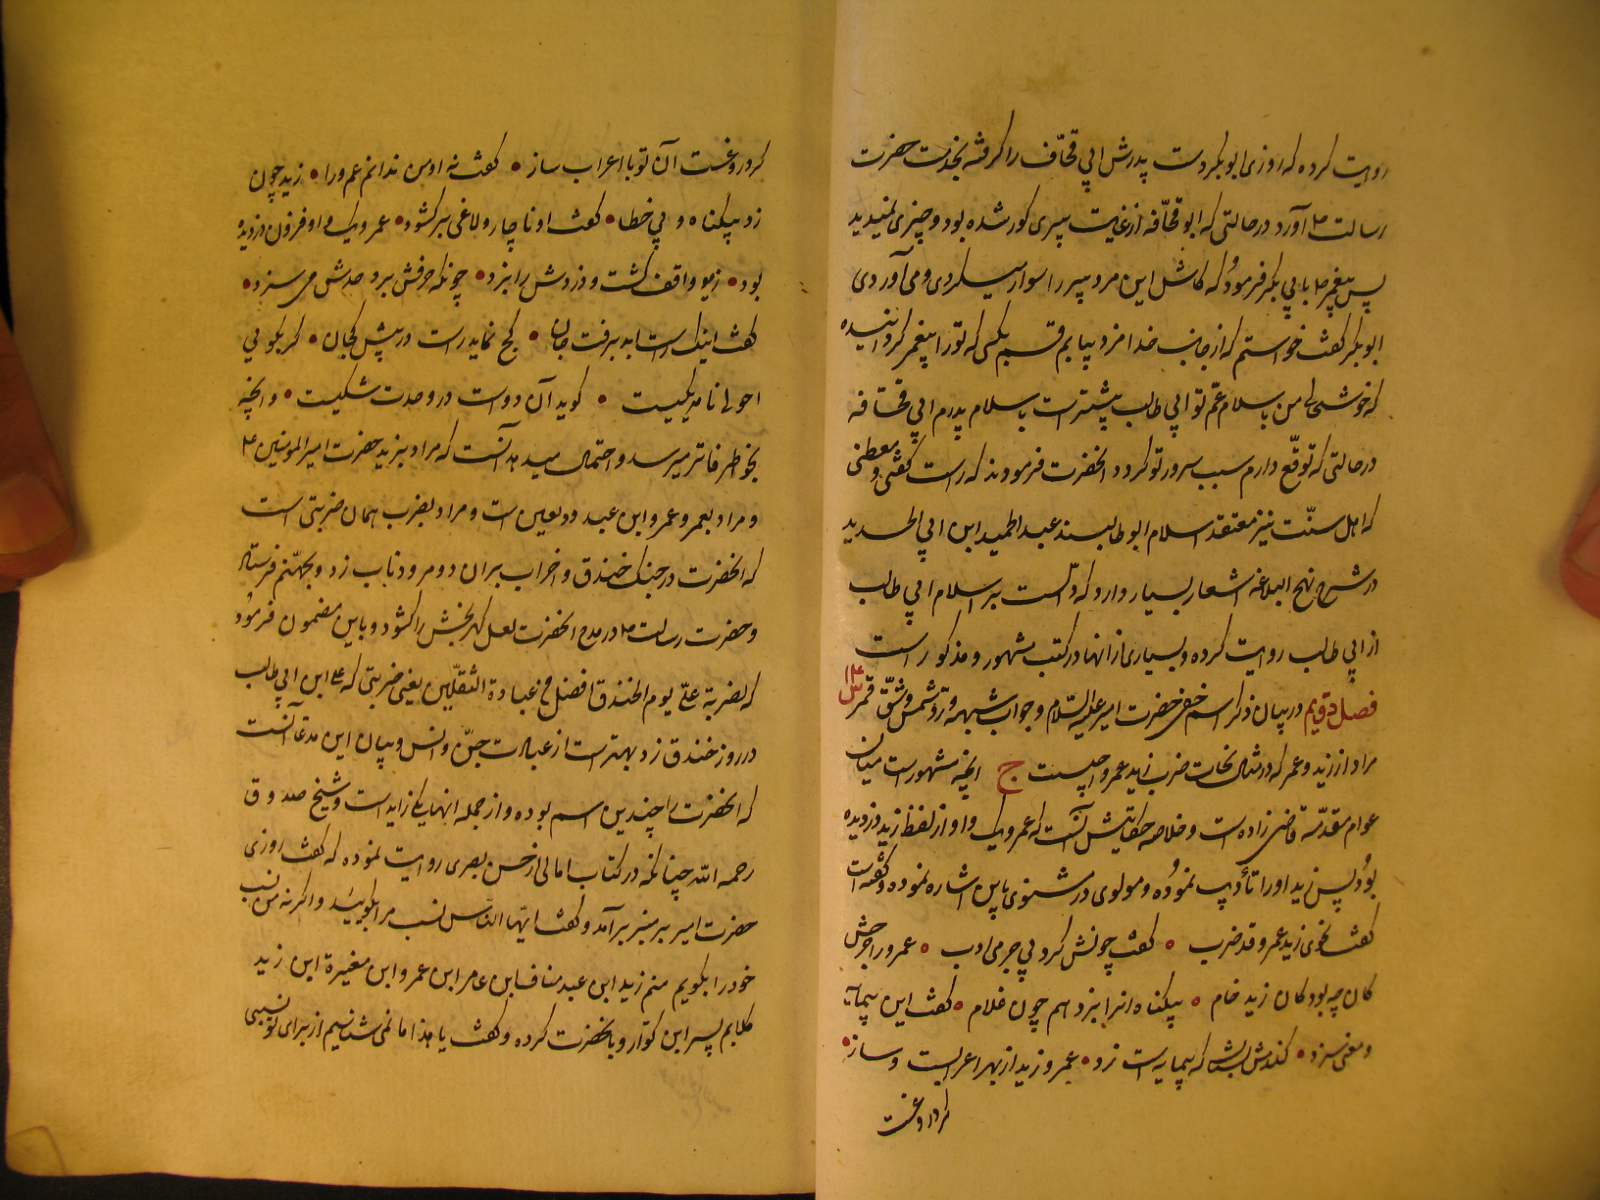 روایت کرده که روزی ابوبکر دست پدرش ابی قحافه را گرفته بخدمت حضرت
رسالت ص آورد درحالتی که ابوقحافه از غایت پیری کور شده بود و چیزی نمیدید
پس پیغمبر ص بابی بکر فرمود که کاش این مرد پیر را سوار میکردی و می آوردی
ابوبکر گفت خواستم که از جانب خدا مزد بیابم قسم بکسی که تو را پیغمبر گردانیده
که خوشحالی من باسلام عم تو ابی طالب بیشتر است باسلام پدرم ابی قحافه
درحالتی که توقع دارم سبب سرور تو کردد انحضرت فرمودند که راست گفتی و معطنی
که اهل سنت نیز معتقد اسلام ابوطالبند عبدالحمید ابن ابی الحدید
در شرح نهج البلاغه اشعار بسیار دارد که دالست بر اسلام ابی طالب
از ابی طالب روایت کرده و بسیاری از انها در کتب مشهور و مذکور است
فصل دویم در بیان ذکر اسم خفی حضرت امیر علیه السلام و جواب شبهه و رد شمس و شق قمر
مراد از زید و عمر که در مثال نحات ضرب زید عمروا چیست ج انچه مشهور است میان
عوام مقدمه قاضی زاده است و خلاصه حکایتش آنست که عمرو یک واو از لفظ زید دزدیده
بود پس زید او را تأدیب نموده و مولوی در مثنوی باین اشاره نموده و گفته است
گفت نحوی زید عمرو قد ضرب • گفت چونش کرد بی جرمی ادب • عمرو را جرمش
کان چه بود کان زید خام • بیکناه انرا بزد هم چون غلام • گفت این پیمانه
و معنی بزد • کندمش بستان که پیمانه است زد • عمرو زید از بهر اعرابست و ساز •
کردروغست
کردروغست آن تو با اعراب ساز • گفت نه او من ندانم عمرو را • زید چون
زد بیکناه و بی خطا • گفت او ناچار و لاغی برکشود • عمرو یک واو فزون دزدیده
بود • زید واقف گشت و دزدش را بزد • چونکه حرفش برد حدش می سزد •
گفت اینک راست بپذیرفت جان • کج نماید راست در پیش کجان • کر بکوئی
احول را مه یکیست • کوید آن دو است در وحدت شکیست • و انچه
بخواطر فاتر میرسد و احتمال میدهد آنست که مراد بزید حضرت امیرالمؤمنین ع
و مراد بعمرو عمرو ابن عبد ود لعین است و مراد بضرب همان ضربتی است
که انحضرت در جنک خندق و احزاب بران دو مرود ناب زد و بجهنم فرستاد
و حضرت رسالت ص در مدح انحضرت لعل کهربخش را گشود و باین مضمون فرمود
که لضربة علی یوم الخندق افضل من عبادة الثقلین یعنی ضربتی که علی ابن ابی طالب
در روز خندق زد بهتر است از عبادت جن و انس و بیان این مدعا آنست
که انحضرت را چندین اسم بوده و از جمله انها یکی زاید است و شیخ صدوق
رحمه الله چنانکه در کتاب امالی از حسن بصری روایت نموده که گفت روزی
حضرت امیر بر منبر برآمد و گفت ایها الناس نسب مرا بگویید و اگر نه من نسب
خود را بگویم منم زید ابن عبد مناف ابن عامر ابن عمرو ابن مغیرة ابن زید
کلابم پسر ابن کوا رو بانحضرت کرده و گفت یا هذا ما نمی شناسیم از برای تو نسبی